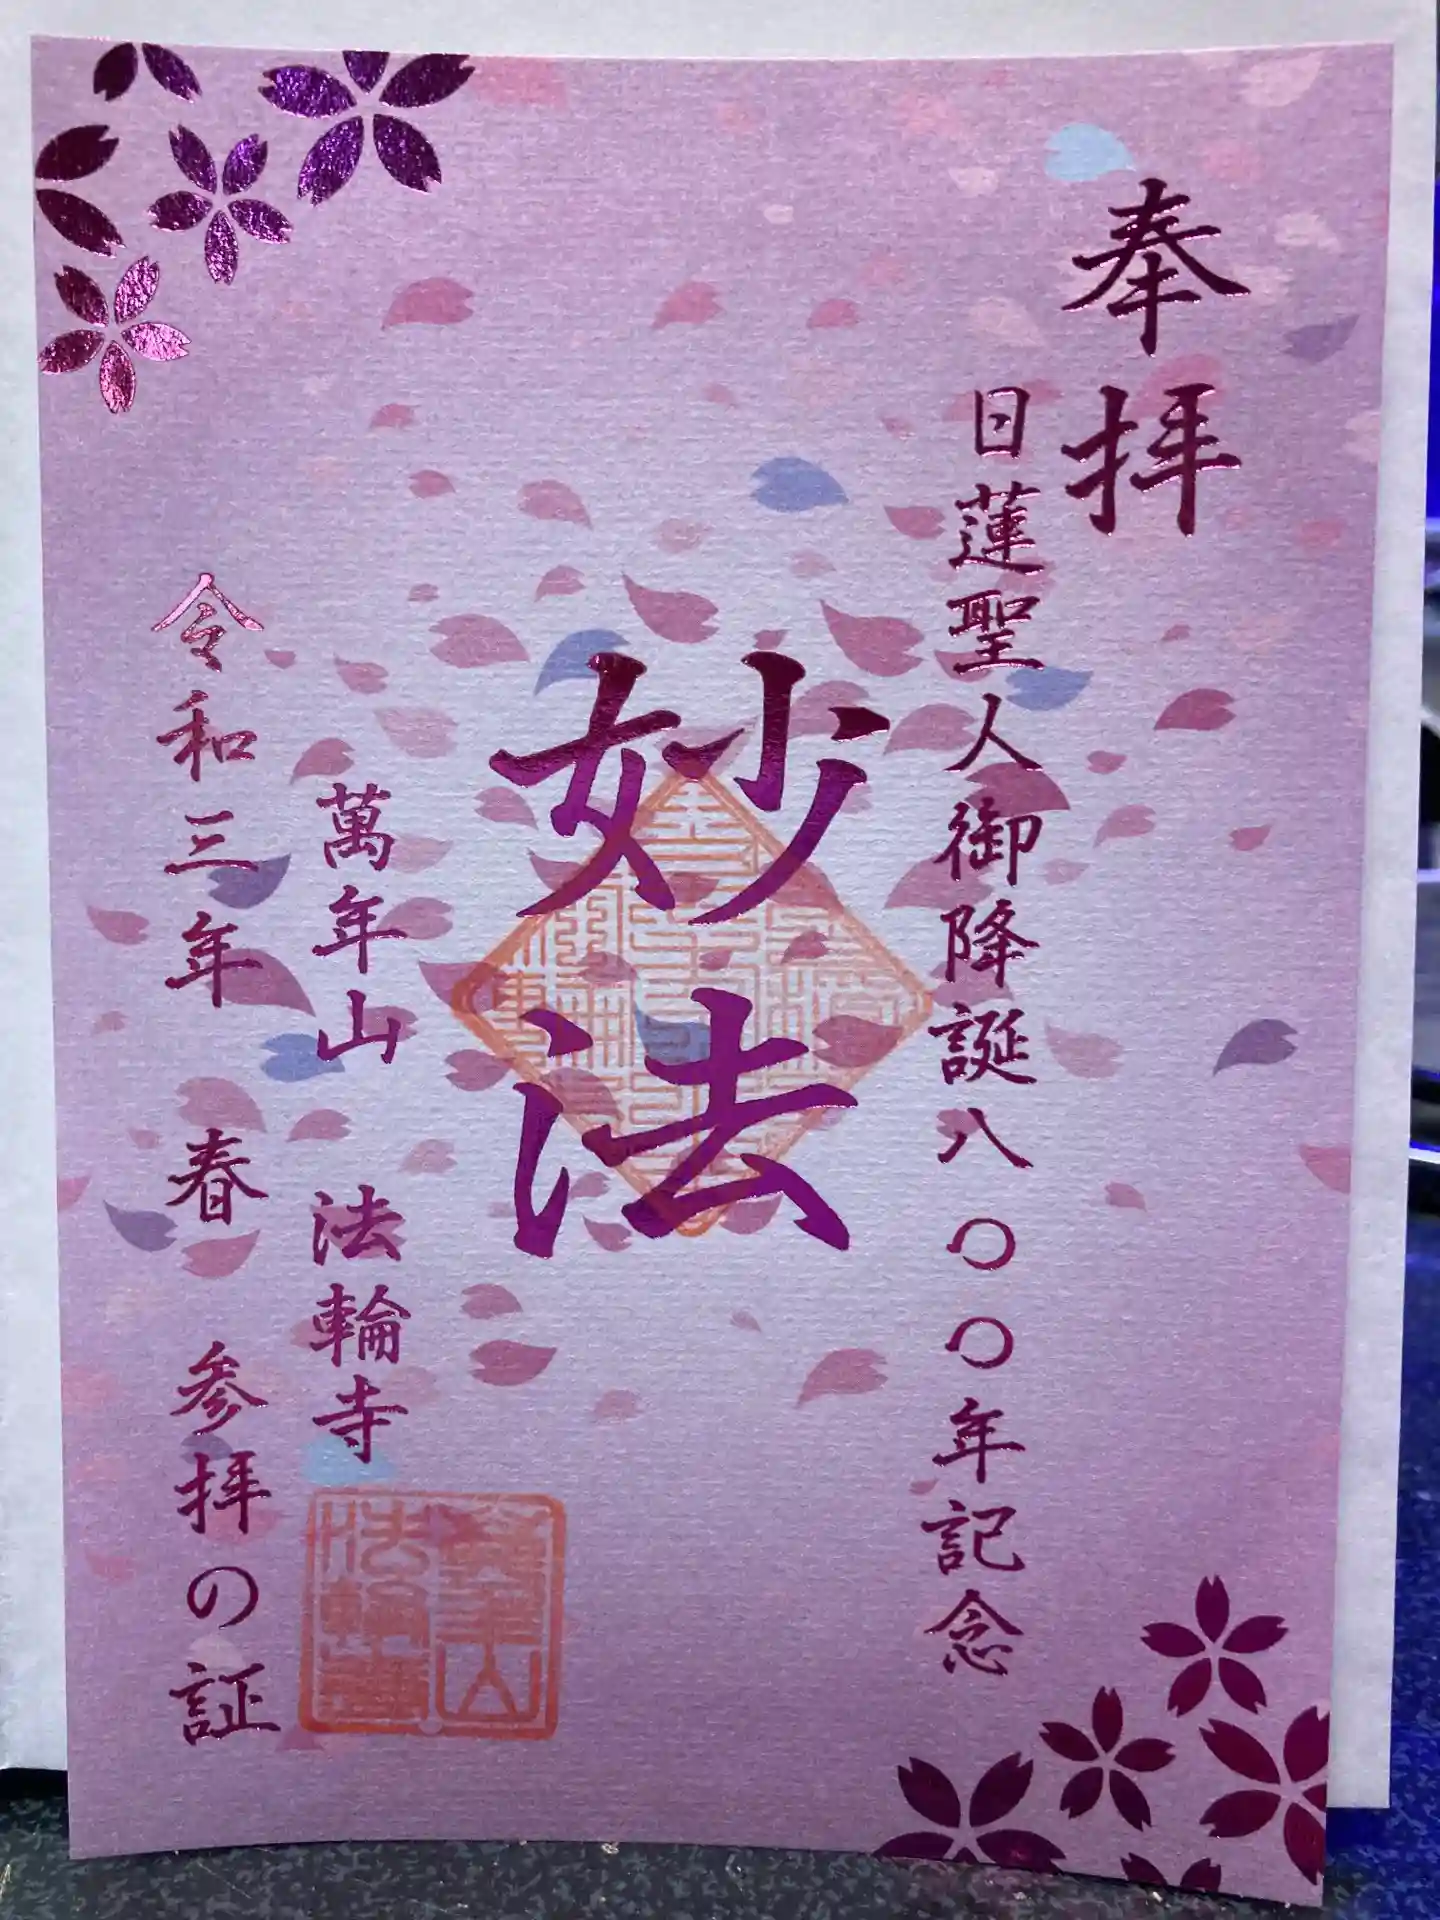 奉拝
日蓮聖人御降誕八〇〇年記念
妙法
萬年山 法輪寺
令和三年 春 参拝の証